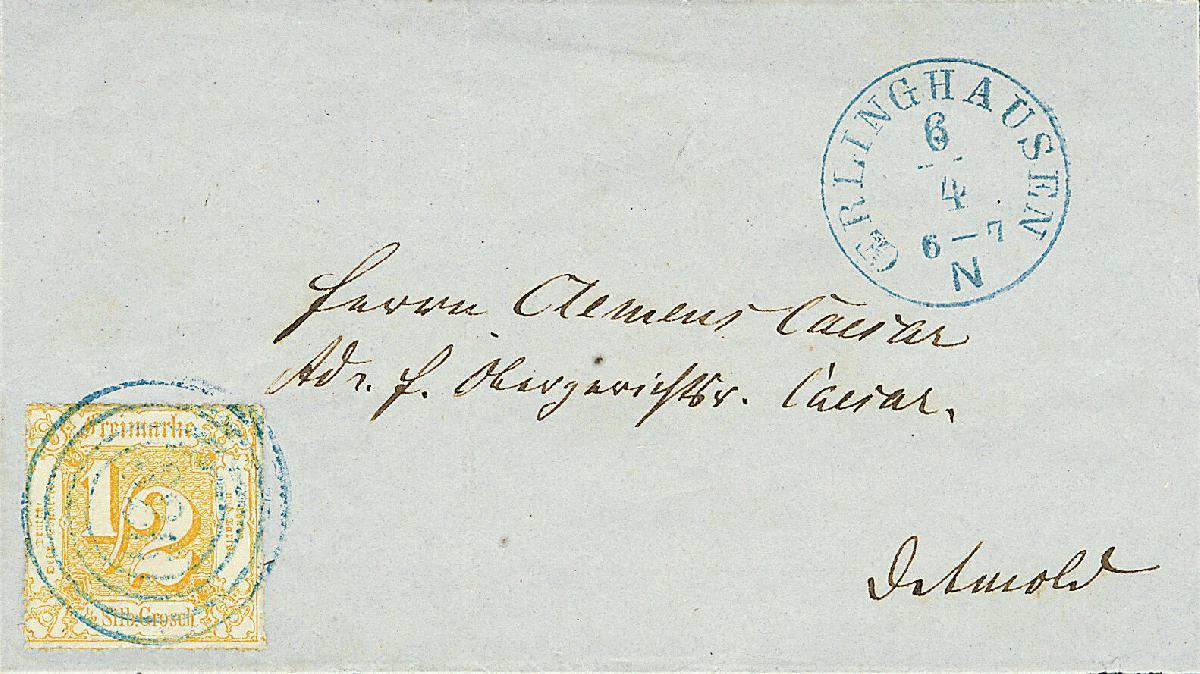 ŒRLINGHAUSEN
6
4
6–7
N
Herrn Clemens Caesar
Adr. f. Obergerichtsr. Caesar.
Detmold
Freimarke
1/2
½ Silb. Grosch